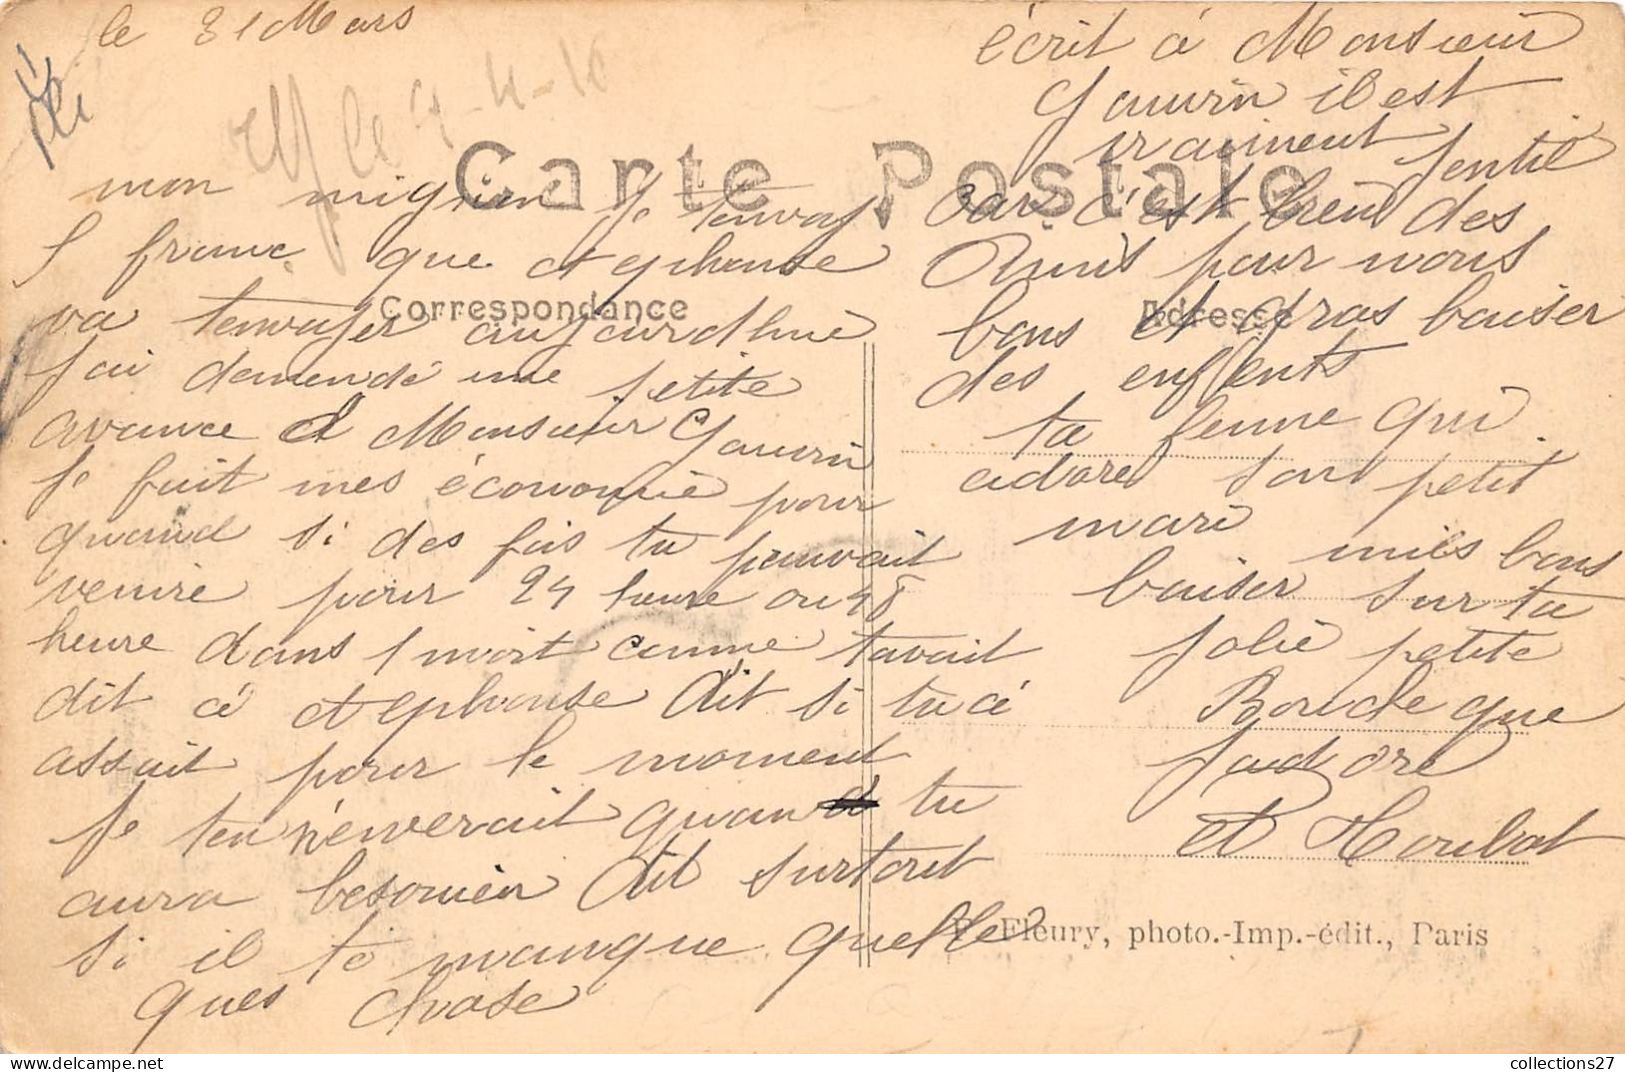 le 31 Mars
le 9-4-16
Carte Postale
Correspondance
Adresse
mon mignon Je tenvoy
5 franc que Alphonse
va tenvoyer aujourdhui
Jai demendé une petite
avance à Monsieur Gauvin
Je fait mes économie pour
quand si des fois tu pouvait
venire pour 24 heure ou 48
heure dans 1 moit comme tavait
dit à Alphonse Dit si tu à
assait pour le moment
Je ten renverait quand tu
aura besouien Dit surtout
si il te manque quelle
ques chose
écrit à Monsieur
Gauvin il est
vraiment Jentil
Car c'est bien des
Amis pour nous
bons et gras baiser
des enffents
ta femme qui
adore son petit
mari
mies bons
baiser sur ta
Jolie petite
Boude que
Jadore
et
F. Fleury, photo.-Imp.-édit., Paris
collections27